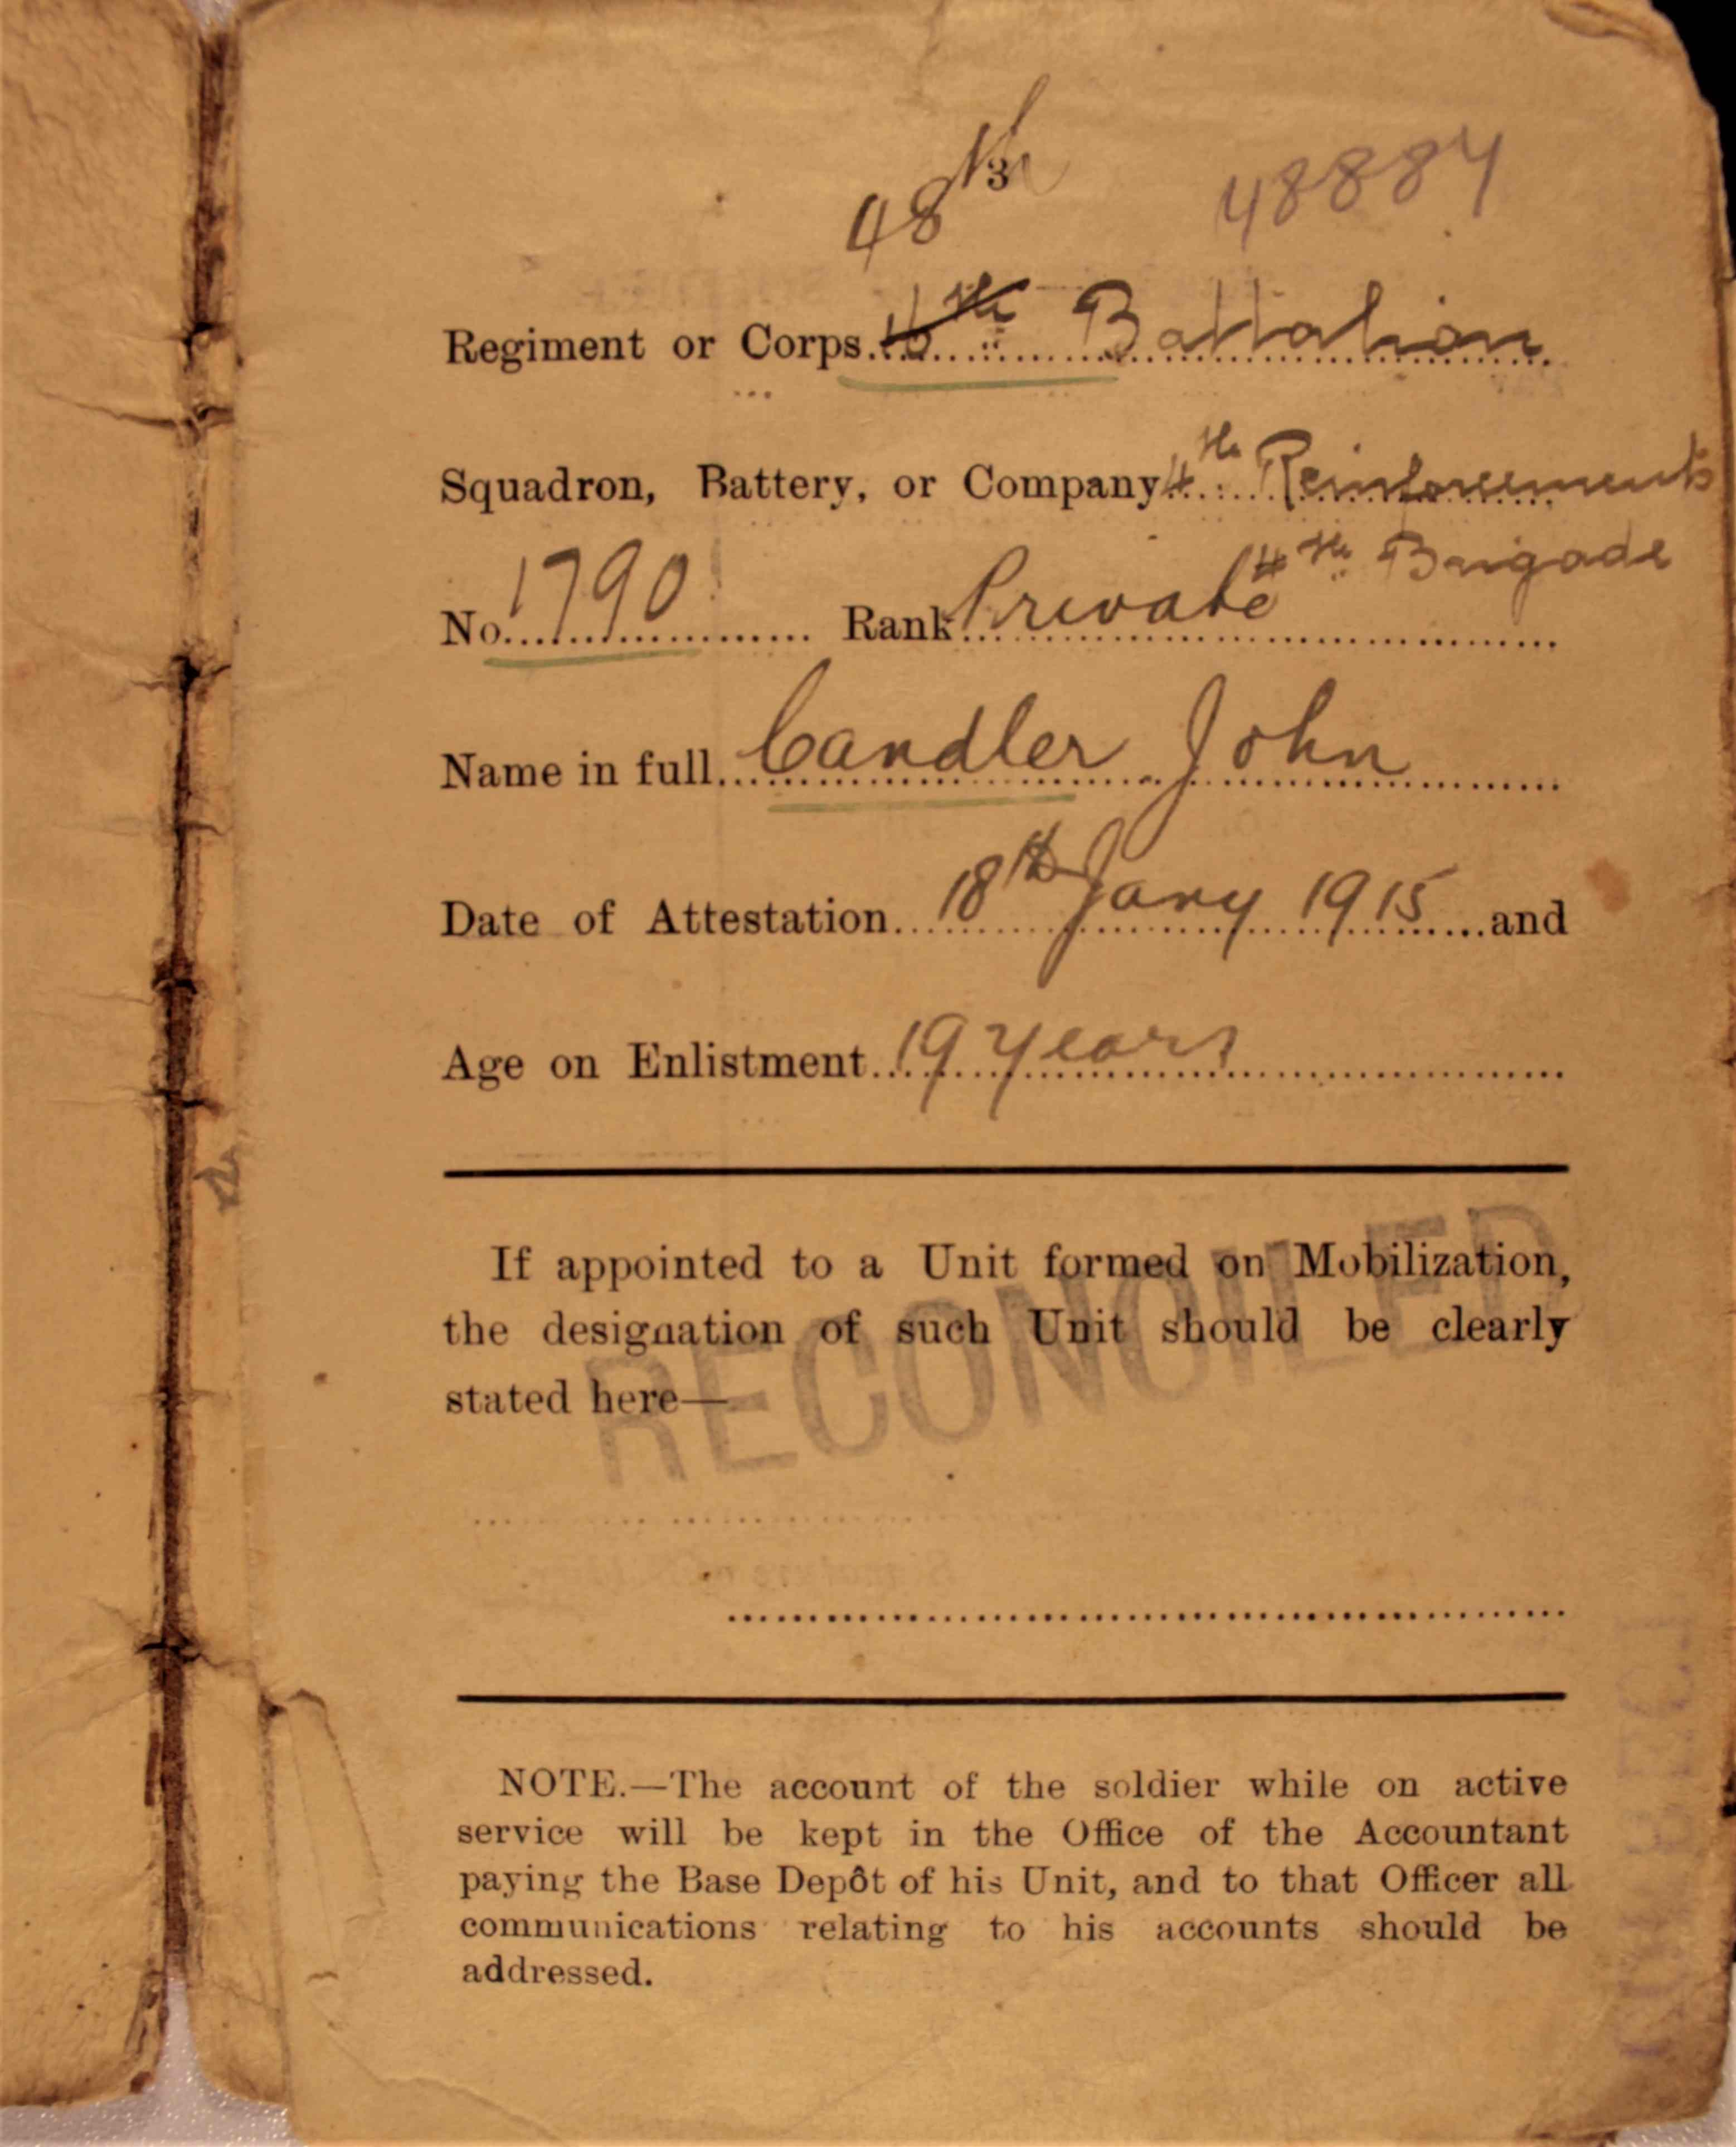 48th
3
48884
Regiment or Corps 16th Battalion
Squadron, Battery, or Company 4th Reinforcements
4th Brigade
No. 1790 Rank Private
Name in full Candler John
Date of Attestation 18th Jany 1915 and
Age on Enlistment 19 years
If appointed to a Unit formed on Mobilization,
the designation of such Unit should be clearly
stated here—
RECONCILED
NOTE.—The account of the soldier while on active
service will be kept in the Office of the Accountant
paying the Base Depôt of his Unit, and to that Officer all
communications relating to his accounts should be
addressed.